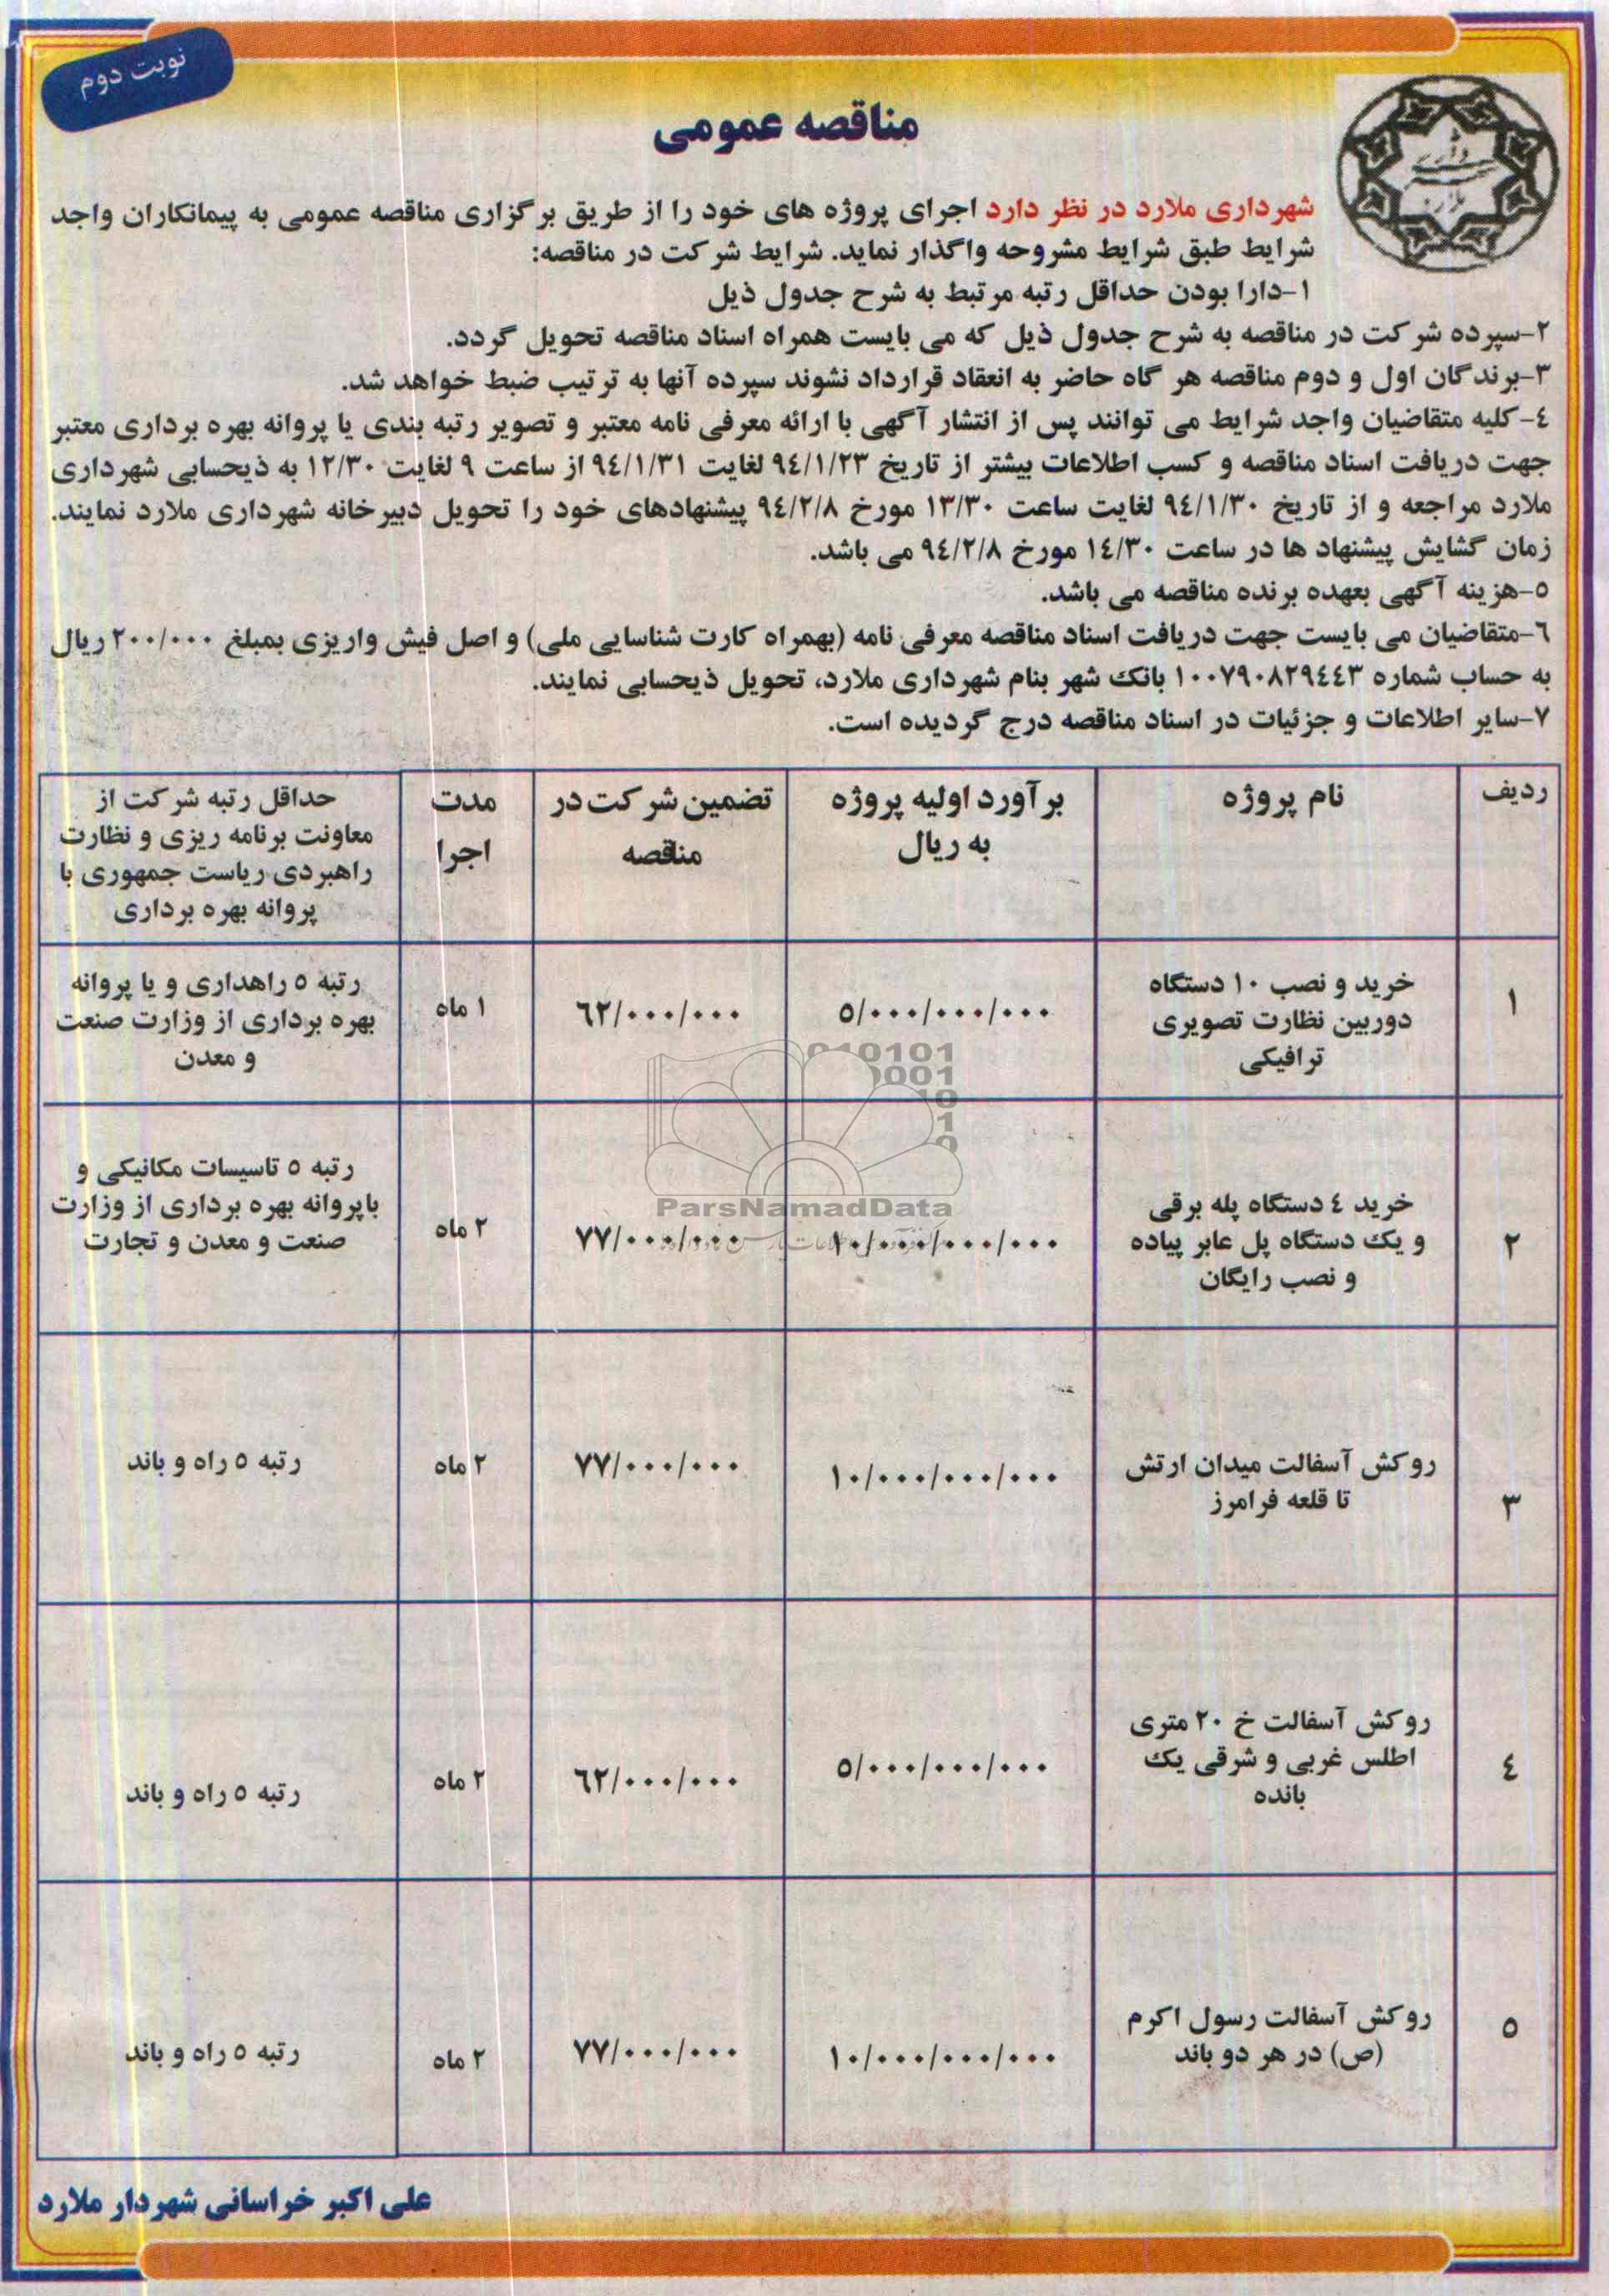 نوبت دوم
مناقصه عمومی
شهرداری ملارد در نظر دارد اجرای پروژه های خود را از طریق برگزاری مناقصه عمومی به پیمانکاران واجد
شرایط طبق شرایط مشروحه واگذار نماید. شرایط شرکت در مناقصه:
۱-دارا بودن حداقل رتبه مرتبط به شرح جدول ذیل
۲-سپرده شرکت در مناقصه به شرح جدول ذیل که می بایست همراه اسناد مناقصه تحویل گردد.
۳-برندگان اول و دوم مناقصه هر گاه حاضر به انعقاد قرارداد نشوند سپرده آنها به ترتیب ضبط خواهد شد.
۴-کلیه متقاضیان واجد شرایط می توانند پس از انتشار آگهی با ارائه معرفی نامه معتبر و تصویر رتبه بندی یا پروانه بهره برداری معتبر
جهت دریافت اسناد مناقصه و کسب اطلاعات بیشتر از تاریخ ۹۴/۱/۲۳ لغایت ۹۴/۱/۳۱ از ساعت ۹ لغایت ۱۲/۳۰ به ذیحسابی شهرداری
ملارد مراجعه و از تاریخ ۹۴/۱/۳۰ لغایت ساعت ۱۳/۳۰ مورخ ۹۴/۲/۸ پیشنهادهای خود را تحویل دبیرخانه شهرداری ملارد نمایند.
زمان گشایش پیشنهاد ها در ساعت ۱۴/۳۰ مورخ ۹۴/۲/۸ می باشد.
۵-هزینه آگهی بعهده برنده مناقصه می باشد.
۶-متقاضیان می بایست جهت دریافت اسناد مناقصه معرفی نامه (بهمراه کارت شناسایی ملی) و اصل فیش واریزی بمبلغ ۲۰۰/۰۰۰ ریال
به حساب شماره ۱۰۰۷۹۰۸۲۹۴۴۳ بانک شهر بنام شهرداری ملارد، تحویل ذیحسابی نمایند.
۷-سایر اطلاعات و جزئیات در اسناد مناقصه درج گردیده است.
ردیف
نام پروژه
برآورد اولیه پروژه
به ریال
تضمین شرکت در
مناقصه
مدت
اجرا
حداقل رتبه شرکت از
معاونت برنامه ریزی و نظارت
راهبردی ریاست جمهوری با
پروانه بهره برداری
۱
خرید و نصب ۱۰ دستگاه
دوربین نظارت تصویری
ترافیکی
۵/۰۰۰/۰۰۰/۰۰۰
۶۲/۰۰۰/۰۰۰
۱ ماه
رتبه ۵ راهداری و یا پروانه
بهره برداری از وزارت صنعت
و معدن
۲
خرید ۴ دستگاه پله برقی
و یک دستگاه پل عابر پیاده
و نصب رایگان
۱۰/۰۰۰/۰۰۰/۰۰۰
۷۷/۰۰۰/۰۰۰
۲ ماه
رتبه ۵ تاسیسات مکانیکی و
باپروانه بهره برداری از وزارت
صنعت و معدن و تجارت
۳
روکش آسفالت میدان ارتش
تا قلعه فرامرز
۱۰/۰۰۰/۰۰۰/۰۰۰
۷۷/۰۰۰/۰۰۰
۲ ماه
رتبه ۵ راه و باند
۴
روکش آسفالت خ ۲۰ متری
اطلس غربی و شرقی یک
بانده
۵/۰۰۰/۰۰۰/۰۰۰
۶۲/۰۰۰/۰۰۰
۲ ماه
رتبه ۵ راه و باند
۵
روکش آسفالت رسول اکرم
(ص) در هر دو باند
۱۰/۰۰۰/۰۰۰/۰۰۰
۷۷/۰۰۰/۰۰۰
۲ ماه
رتبه ۵ راه و باند
علی اکبر خراسانی شهردار ملارد
ParsNamadData